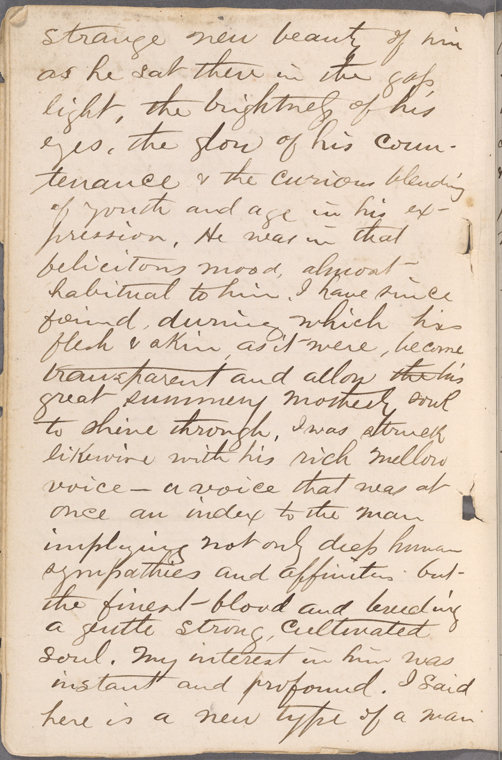 strange new beauty of him
as he sat there in the gas
light, the brightness of his
eyes, the glow of his coun-
tenance & the curious blending
of youth and age in his ex-
pression. He was in that
felicitous mood, almost
habitual to him, I have since
found, during which his
flesh & skin, as it were, become
transparent and allow the his
great summery motherly soul
to shine through. I was struck
likewise with his rich mellow
voice — a voice that was at
once an index to the man
implying not only deep human
sympathies and affinities but
the finest blood and breeding
a gentle strong, cultivated
soul. My interest in him was
instant and profound. I said
here is a new type of a man